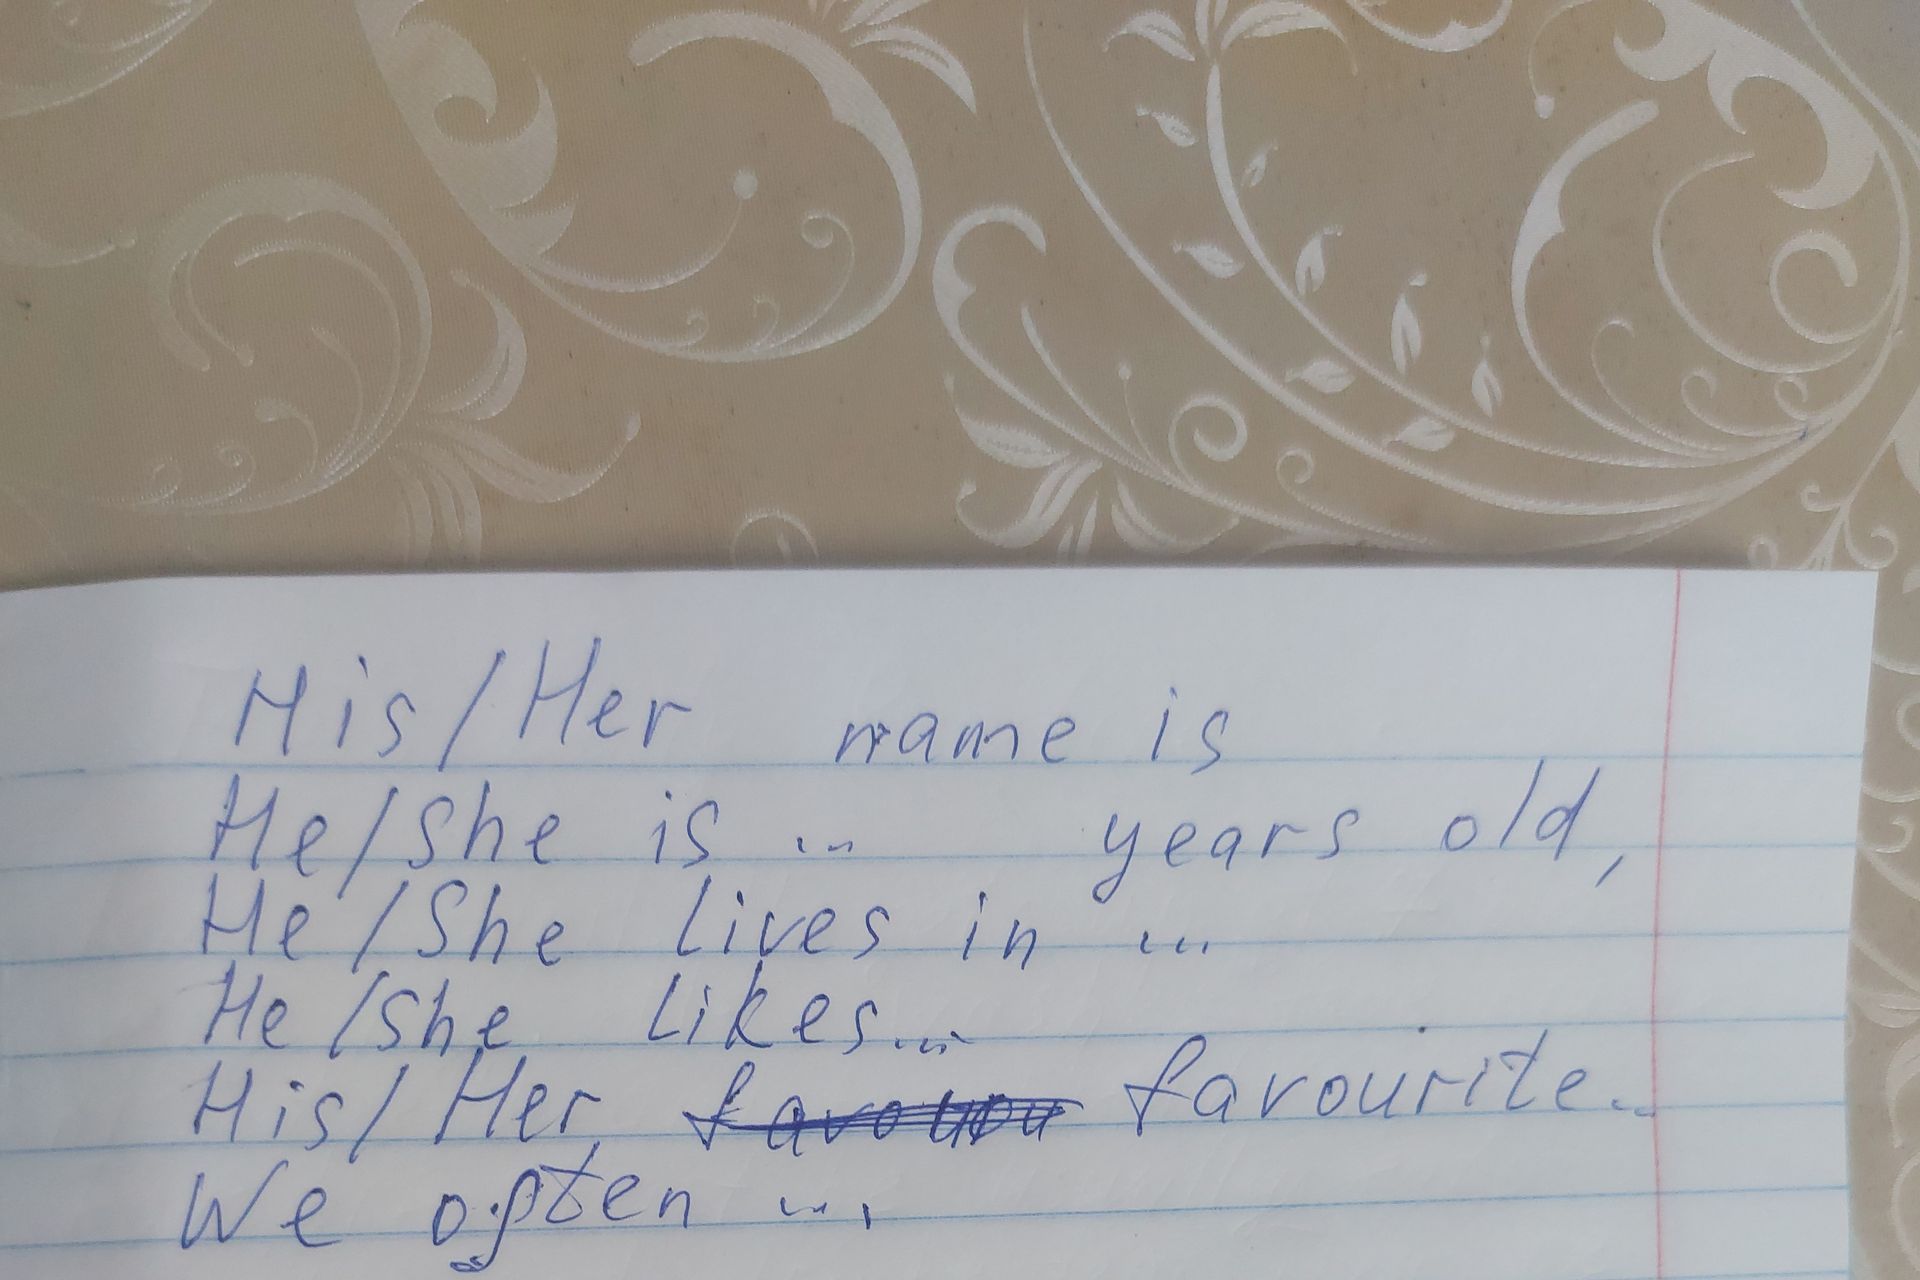 His/Her name is
He/She is ... years old,
He/She lives in ...
He/She likes...
His/Her favourite...
We often ...